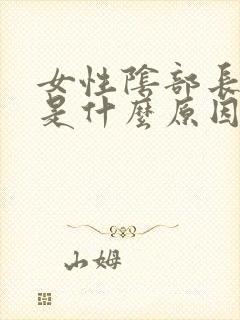 女性陰部長
是什麼原因
山姆